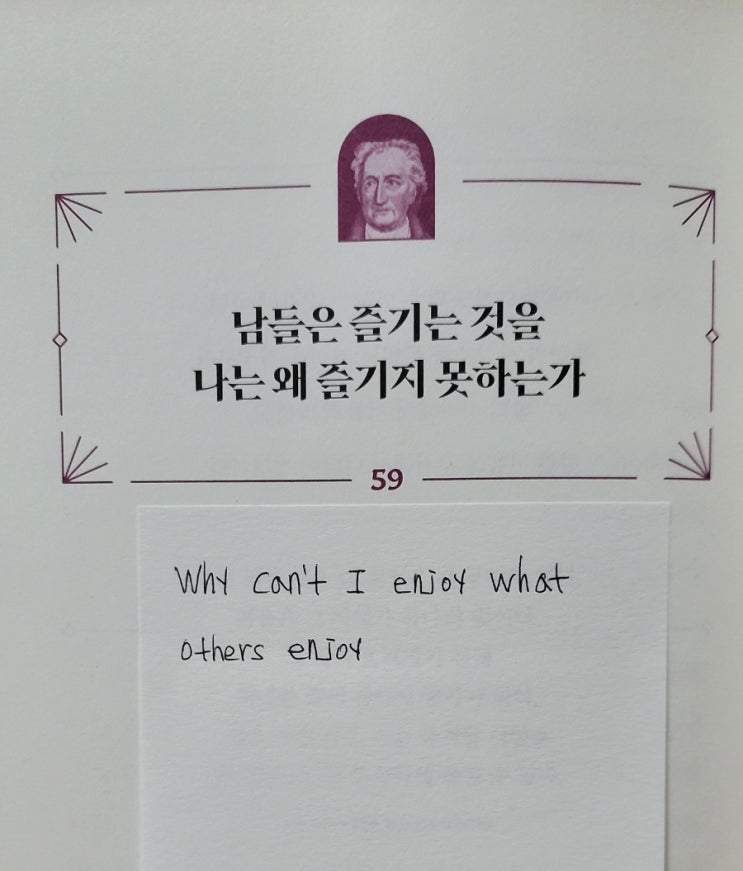 남들은 즐기는 것을
나는 왜 즐기지 못하는가
59
Why can't I enjoy what
others enjoy